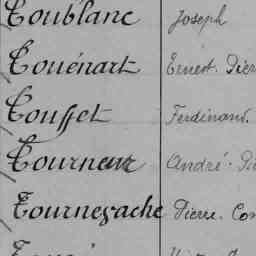 Toublanc Joseph
Touénart Ernest. Pier
Touffet Ferdinand.
Tourneur André. Pi
Tournevache Pierre. Con